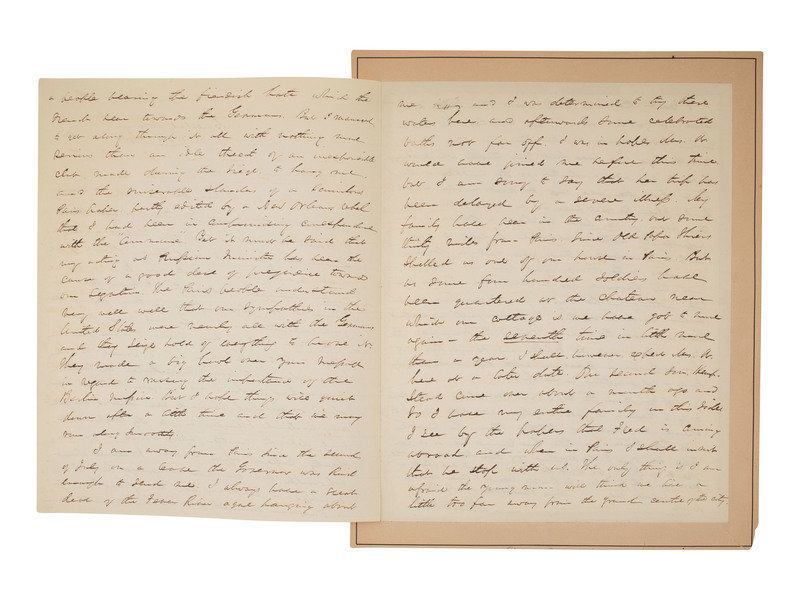 a people bearing the fiendish hate which the
French bear towards the Germans. But I managed
to get along through it all with nothing more
serious than an idle threat of an irresponsible
club made during the siege, to hang me
and the miserable slanders of a
Paris paper partly edited by a New Orleans rebel
that I had been in correspondence
with the Germans. But it must be said that
my acting as Prussian Minister has been the
cause of a good deal of prejudice toward
our Legation. The Paris people understand
very well well that our sympathies in the
United States were nearly all with the Germans
and they seize hold of everything to prove it.
They made a big howl over your message
in regard to raising the importance of the
Berlin mission. But I hope things will quiet
down after a little time and that we may
run along smoothly.
I am away from Paris since the second
of July on a leave the Governor was kind
enough to send me. I always have a great
deal of the Fever River ague hanging about
me and I was determined to try these
waters here and afterwards some celebrated
baths not far off. I was in hopes Mrs. W.
would have joined me before this time
but I am sorry to say that her trip has
been delayed by a severe illness. My
family have been in the country some
thirty miles from Paris, since Old Papa Thiers
shelled us out of our house in Paris. But
as some four hundred soldiers have
been quartered at the chateau near
which our cottage is we have got to move
again - the seventh time in little more
than a year. I shall however expect Mrs. W.
here at a later date. The second son,
came over about a month ago and
so I have my entire family on this side.
I see by the papers that Fred is coming
abroad and when in Paris I shall insist
that he stop with us. The only thing is I am
afraid the young man will think we live a
little too far away from the grand centre of the city